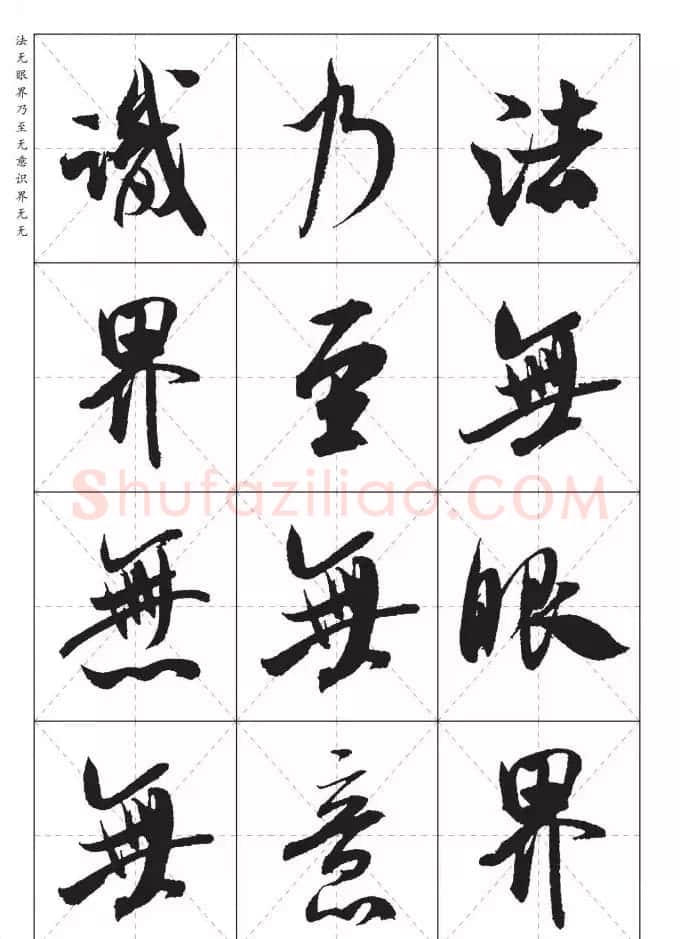 法无眼界乃至无意识界无无
法無眼界
乃至無意
識界無無
Shufaziliao.COM